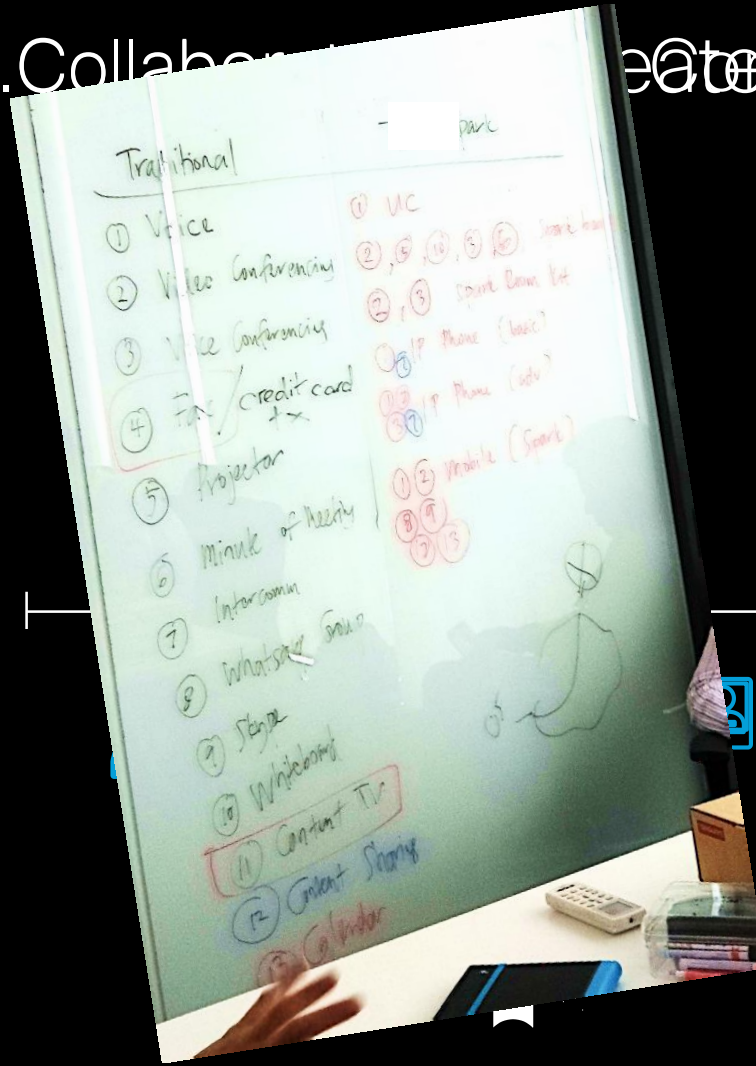 Traditional
① Voice
② Video Conferencing
③ Voice Conferencing
④ Fax / credit card
tx
⑤ Projector
⑥ Minute of Meeting
⑦ Intercomm
⑧ Whatsapp Group
⑨ Skype
⑩ Whiteboard
⑪ Content TV
⑫ Content Sharing
⑬ Calendar
park
① UC
②, ⑤, ⑩, ③, Spark
②, ③ Spark Room Kit
① IP Phone (basic)
IP Phone (adv)
① ② mobile (Spark)
⑧ ⑨
⑦ ⑬